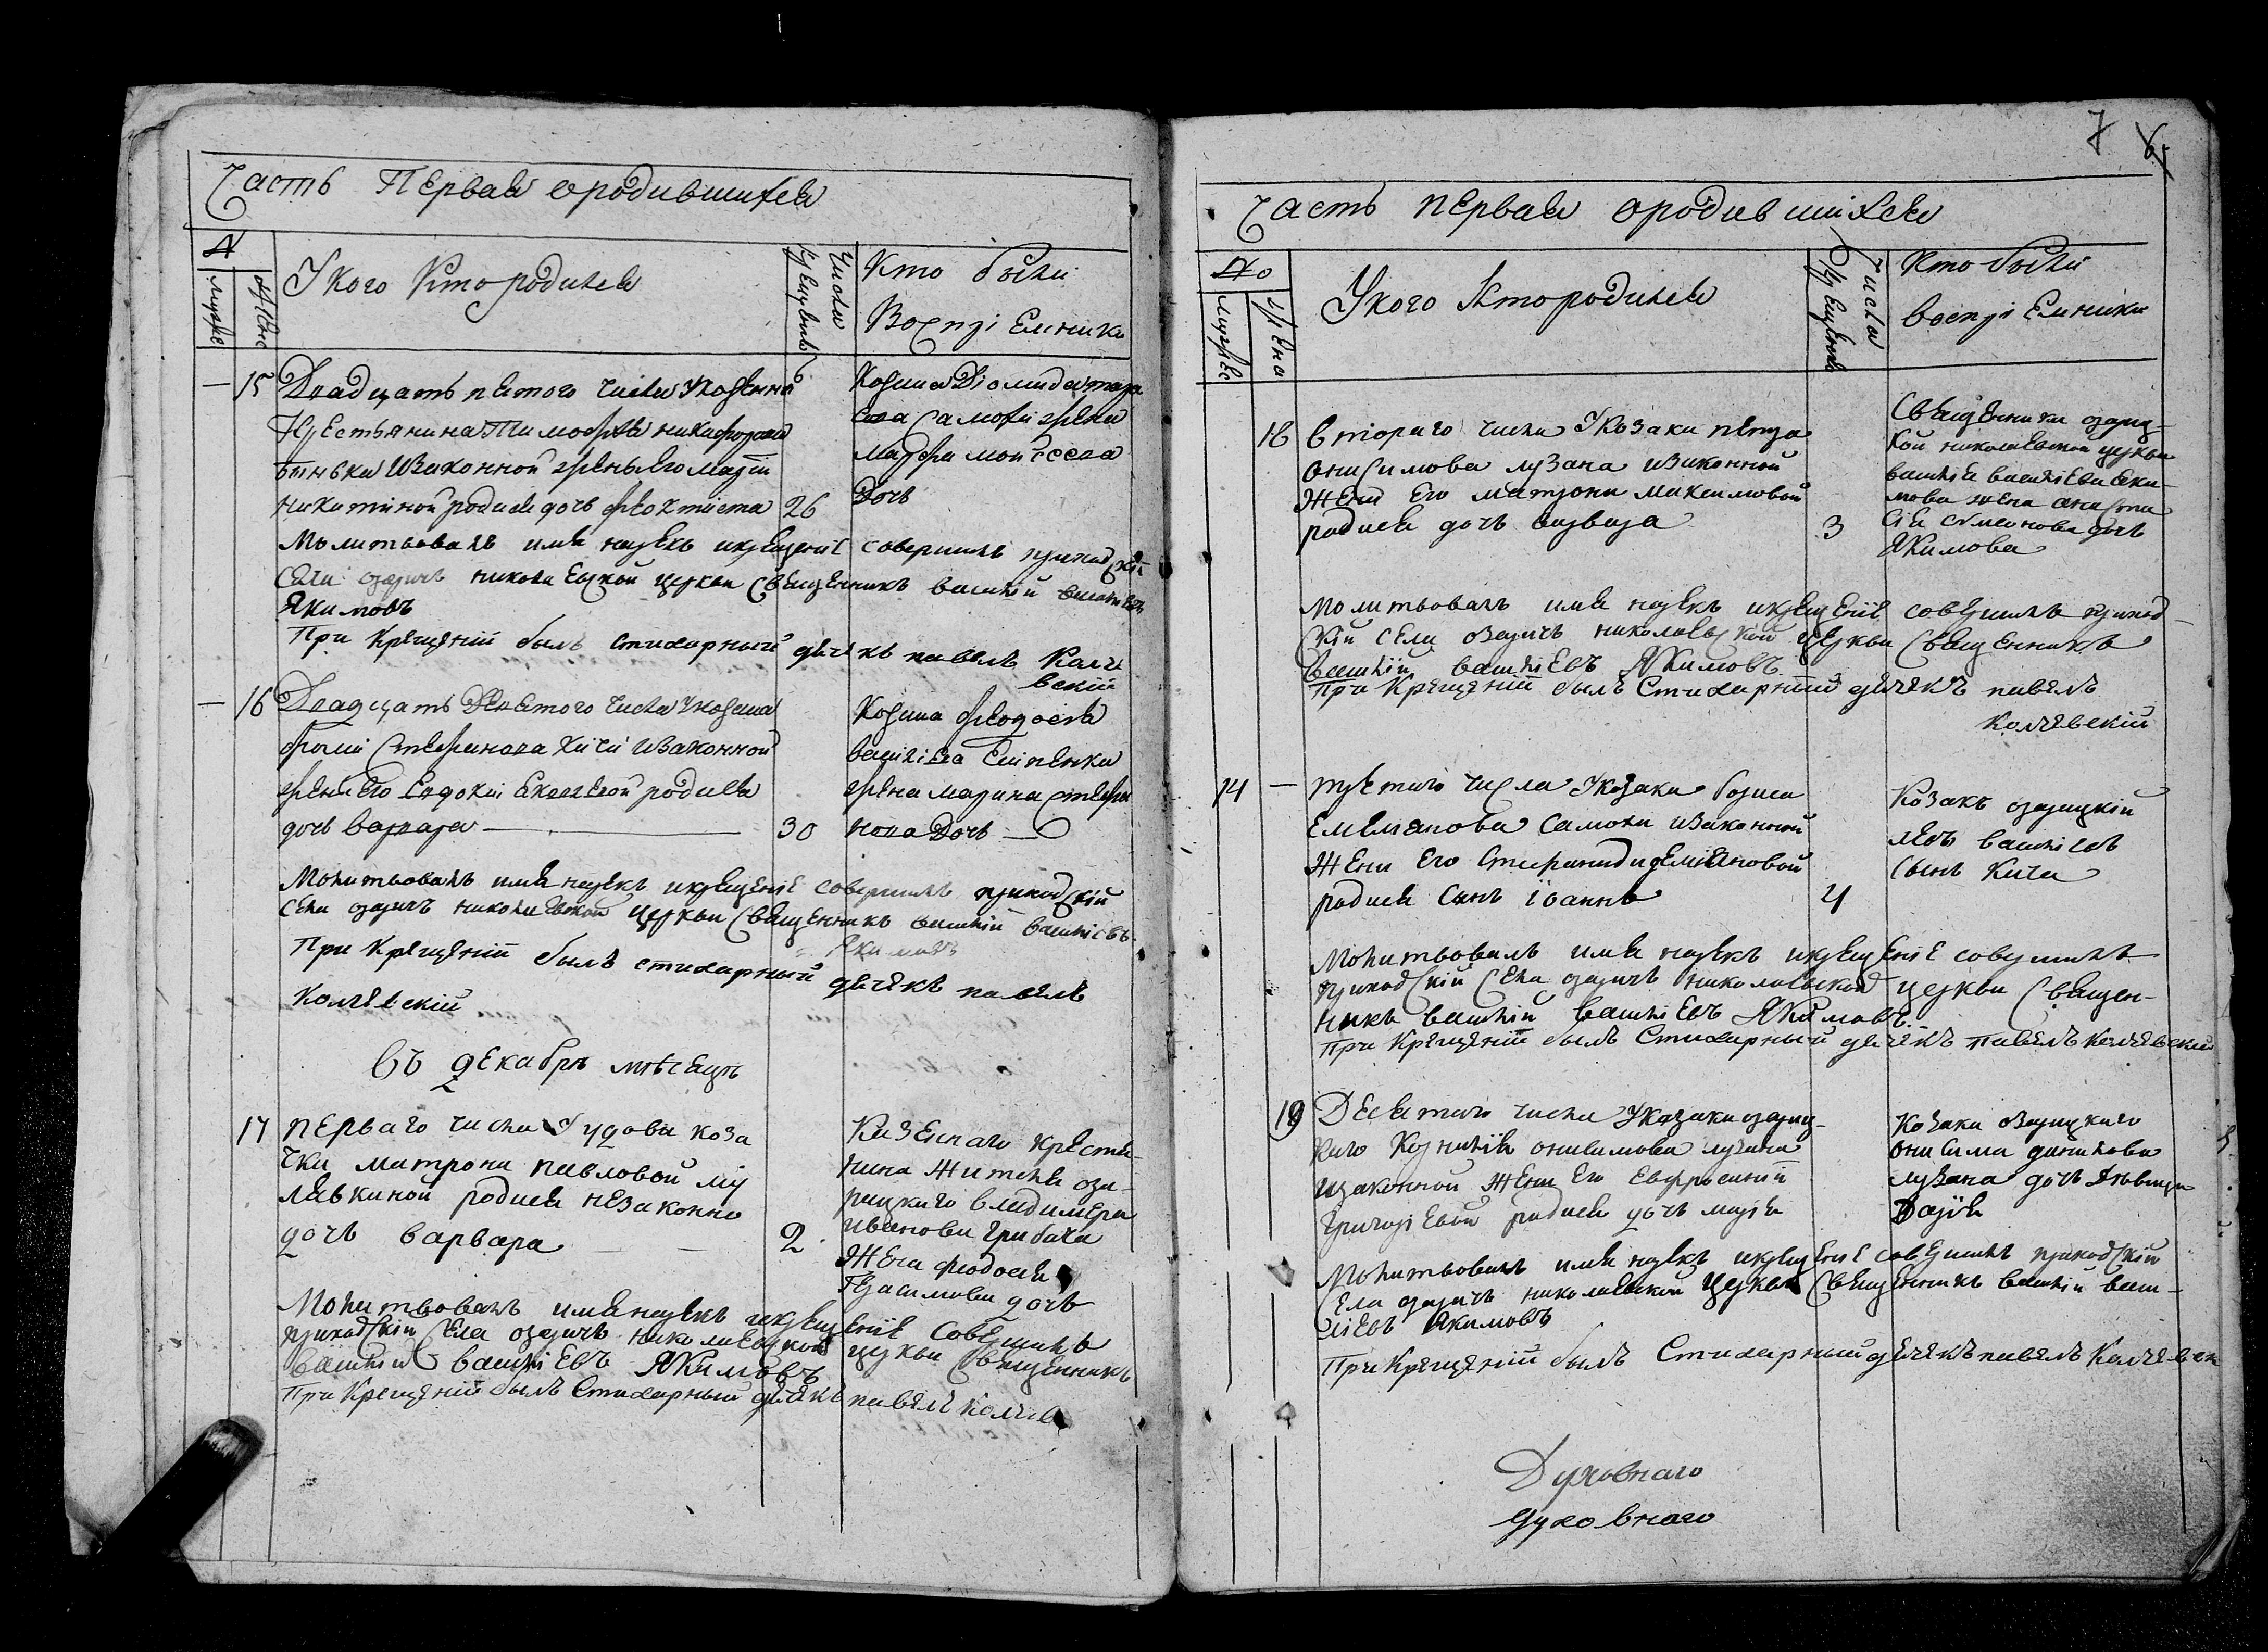 Часть Первая ородившихся
№
мужес
женс
Укого Кто родился
Числа
крещения
Кто были
Воспріемники
— 15 Двадцать пятого числа Укозенна
Крестьянина Тимофея никифорова
изаконной жены Его Маріи
никитиной родися дочь феоктиста 26
Козака Діомида
жена
марфа моисеева
Дочь
Молитвовалъ имя нарекъ икрещеніе совершилъ приходскій
села озаричъ николаевской церкви священникъ василій василіевъ
Якимовъ
При крещеній былъ стихарный дячекъ павелъ Колче
вскій
— 16 Двадцать девятого числа Укозака
фомы Стефанова Кичи изаконной
жены Его Евдокіи родися
дочь варвара — 30
Козака феодосія
василіева
жена марина Стефа
нова Дочь
Молитвовалъ имя нарекъ икрещеніе совершилъ приходскій
села озаричъ николаевской церкви священникъ василій василіевъ
Якимовъ
При крещеній былъ стихарный дячекъ павелъ
колчевскій
въ декабрѣ мѣсецѣ
17 перваго числа Увдови коза
чки матрони павловой му
лявкиной родися незаконно
дочь варвара 2
Казенаго крестя-
нина жителя оза-
рицкого владимера
иванова грибача
жена феодосія
Герасимова дочь
Молитвовалъ имя нарекъ икрещеніе совершилъ
приходскій села озаричъ николаевской церкви священникъ
василій василіевъ Якимовъ
При крещеній былъ Стихарный дячекъ павелъ колчев
7
Часть первая ородившихся
№
мужес
жена
Укого Кто родился
Числа
крещения
Кто были
воспріемники
18 втораго числа Укозака петра
онисимова лузана изаконной
жени его матрони максимовой
родися дочь варвара 3
Священника озариц-
кой николаевской церкви
василія василіева Яки-
мова жена анаста
сія симеонова дочь
Якимова
Молитвовалъ имя нарекъ икрещеніе совершилъ приход-
скій села озаричъ николаевской церкви священникъ
василій василіевъ Якимовъ
При крещеній былъ Стихарный дячекъ павелъ
колчевскій
14 — третего числа Укозака бориса
Емелянова Самохи изаконной
жени его Стефаниди демяновой
родися сынъ іоаннъ 4
Козакъ озарицкій
левъ василіевъ
сынъ Кича
Молитвовалъ имя нарекъ икрещеніе совершилъ
приходскій села озаричъ николаевской церкви священ-
никъ василій василіевъ Якимовъ
При крещеній былъ Стихарный дячекъ павелъ колчевский
19 Десятого числа Укозака озариц-
каго Корнилія онисимова лузана
изаконной жени Его Евфросиній
григоріевой родися дочь марія
Козака озарицкаго
онисима данилова
лузана дочь девица
Дарія
Молитвовалъ имя нарекъ икрещеніе совершилъ приходскій
села озаричъ николаевской церкви священникъ василій васи-
ліевъ Якимовъ
При крещеній былъ Стихарный дячекъ павелъ Колчевск
Духовнаго
духовнаго